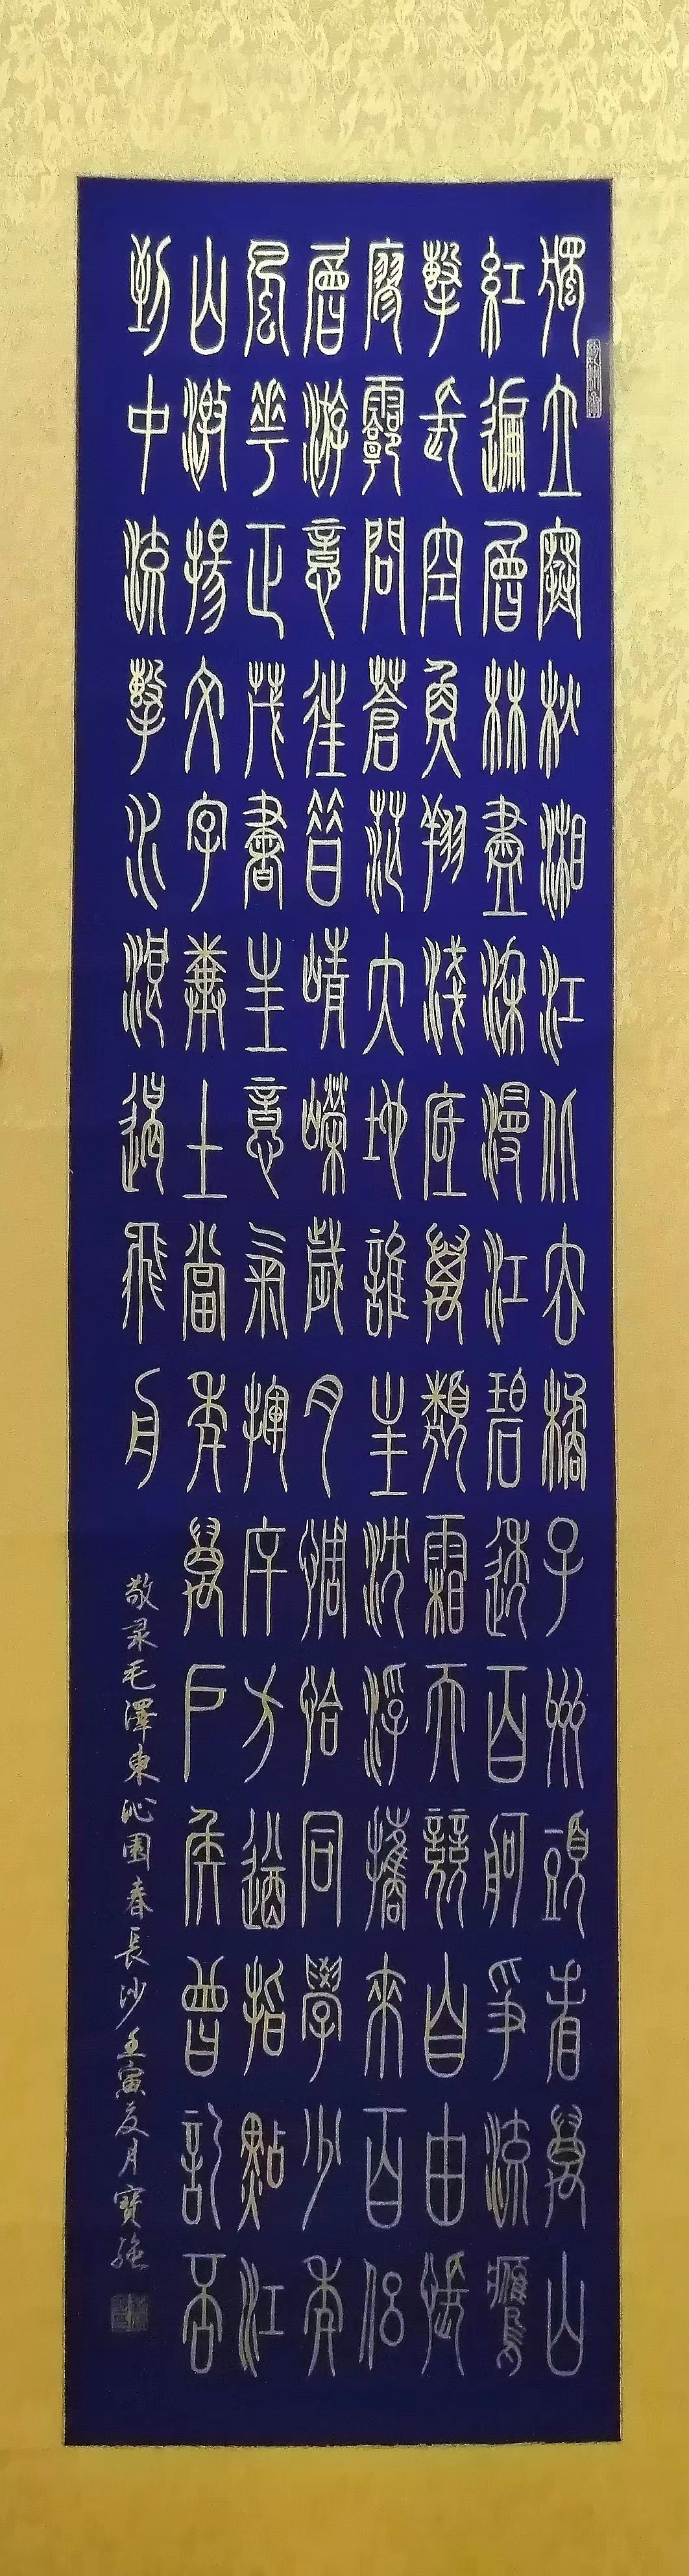 獨立寒秋湘江北去橘子洲頭看萬山
紅遍層林盡染漫江碧透百舸爭流鷹
擊長空魚翔淺底萬類霜天競自由悵
廖廓問蒼茫大地誰主沈浮攜來百侶
層游意往昔崢嶸歲月惆恰同學少年
風華正茂書生意氣揮斥方遒指點江
山激揚文字糞土當年萬戶侯曾記否
到中流擊水浪遏飛舟
敬录毛澤東沁園春長沙壬寅夏月寶強